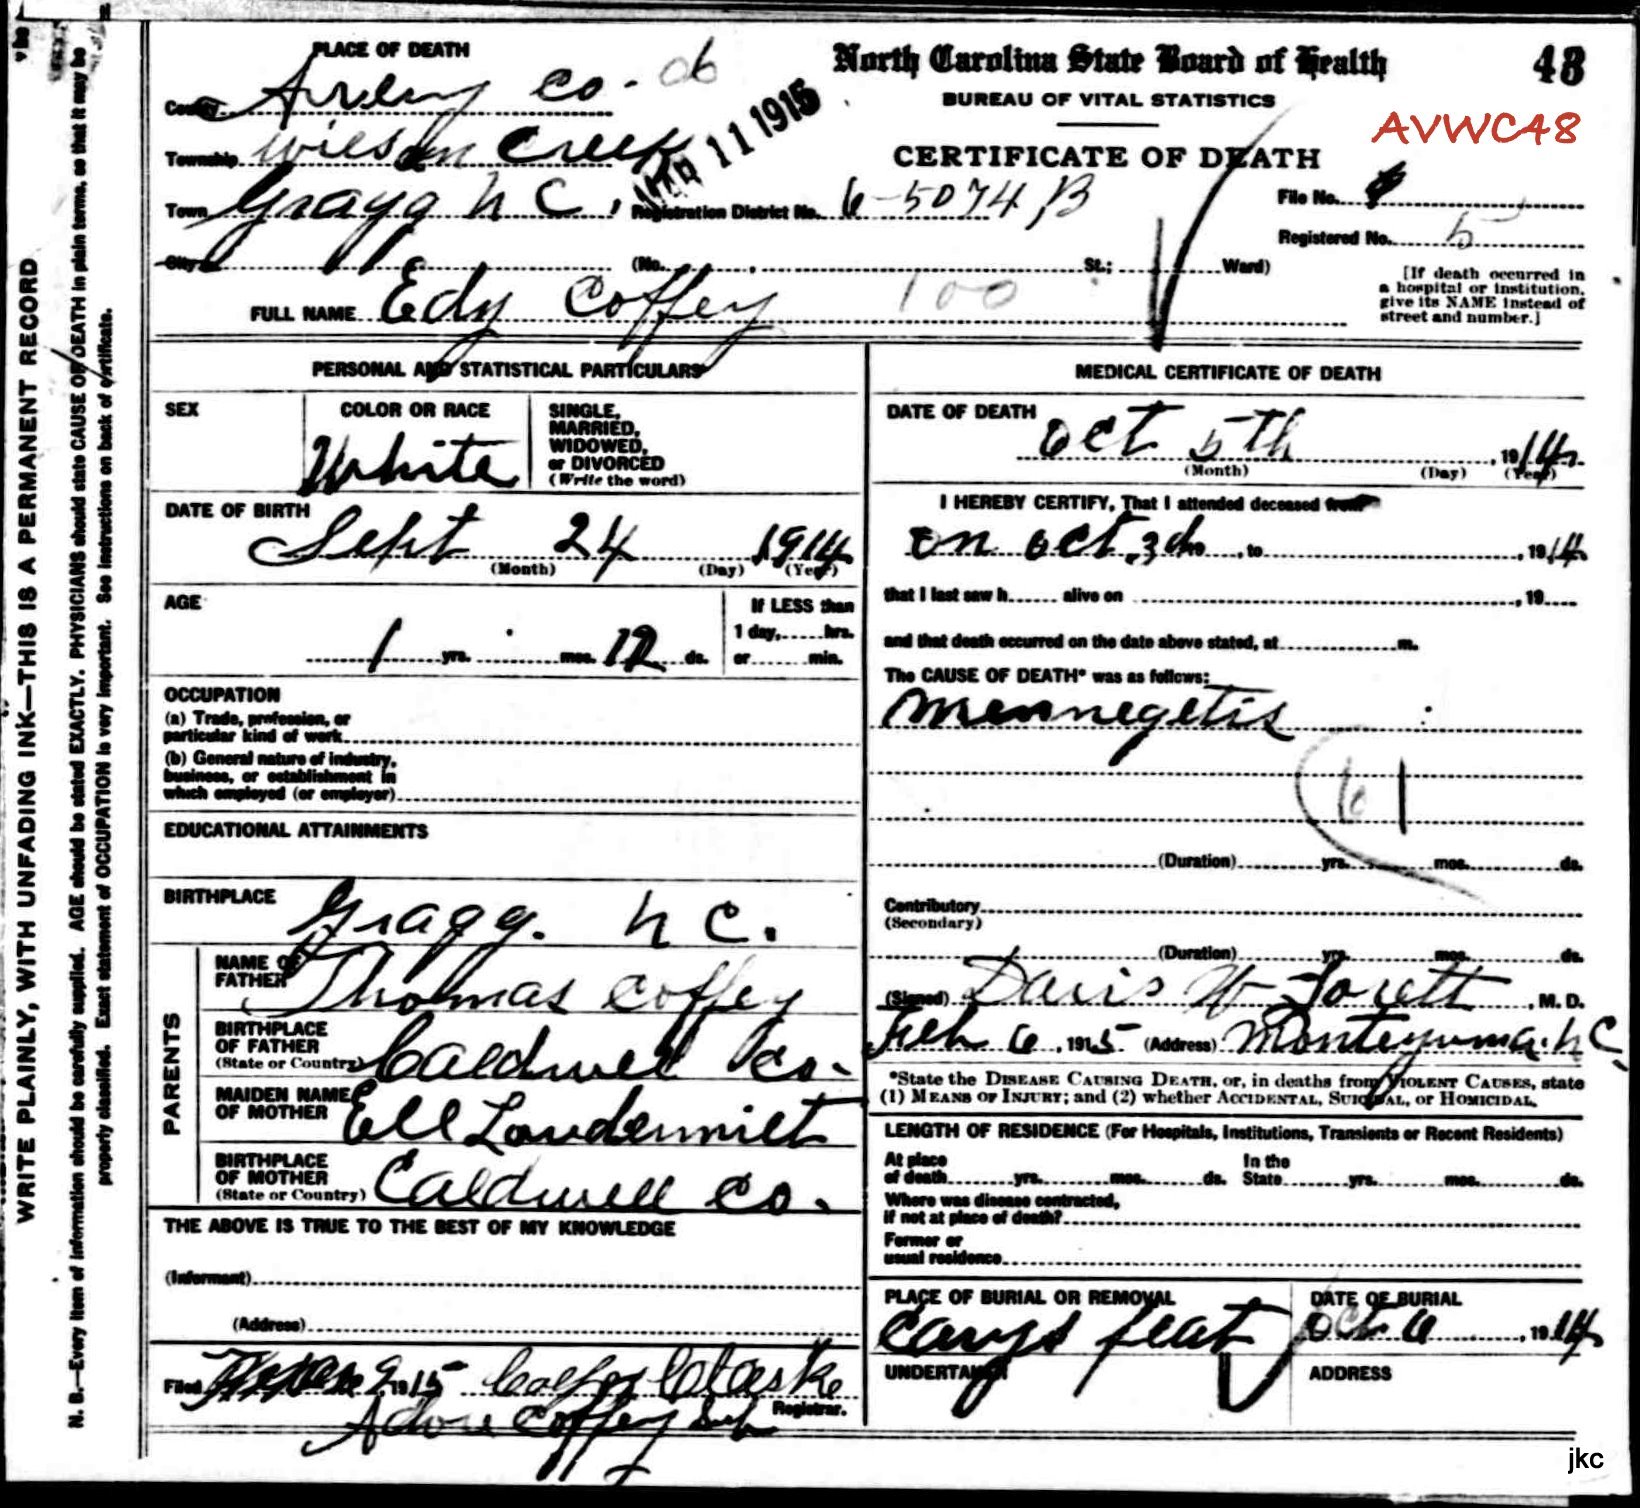 48
PLACE OF DEATH
North Carolina State Board of Health
BUREAU OF VITAL STATISTICS
AVWC48
County Co. 06
MAR 11 1915
CERTIFICATE OF DEATH
Township Wilson Creek
Town Gragg N C.
Registration District No. 6-5074 B
File No.
Registered No. 5
City (No. St.; Ward)
[If death occurred in
a hospital or institution,
give its NAME instead of
street and number.]
FULL NAME Edy Coffey 100
PERSONAL AND STATISTICAL PARTICULARS
SEX
COLOR OR RACE
White
SINGLE,
MARRIED,
WIDOWED,
or DIVORCED
(Write the word)
DATE OF BIRTH
Sept 24 1914
(Month) (Day) (Year)
AGE
1 yrs. mos. 12 ds.
If LESS than
1 day, hrs.
or min.
OCCUPATION
(a) Trade, profession, or
particular kind of work
(b) General nature of industry,
business, or establishment in
which employed (or employer)
EDUCATIONAL ATTAINMENTS
BIRTHPLACE
Gragg. N C.
PARENTS
NAME OF
FATHER Thomas Coffey
BIRTHPLACE
OF FATHER
(State or Country) Caldwell Co.
MAIDEN NAME
OF MOTHER Ell
BIRTHPLACE
OF MOTHER
(State or Country) Caldwell Co.
THE ABOVE IS TRUE TO THE BEST OF MY KNOWLEDGE
(Informant)
(Address)
Filed 9 1915
Registrar.
Coffey Sub
MEDICAL CERTIFICATE OF DEATH
DATE OF DEATH
Oct 5th 1914
(Month) (Day) (Year)
I HEREBY CERTIFY, That I attended deceased from
on Oct. 3d, to , 1914
that I last saw h alive on , 19
and that death occurred on the date above stated, at m.
The CAUSE OF DEATH* was as follows:
Mennegetis
61
(Duration) yrs. mos. ds.
Contributory
(Secondary)
(Duration) yrs. mos. ds.
(Signed) Davis W , M. D.
Feb 6, 1915 (Address) Montezuma. N C
*State the DISEASE CAUSING DEATH, or, in deaths from VIOLENT CAUSES, state
(1) MEANS OF INJURY; and (2) whether ACCIDENTAL, SUICIDAL, or HOMICIDAL.
LENGTH OF RESIDENCE (For Hospitals, Institutions, Transients or Recent Residents)
At place
of death yrs. mos. ds.
In the
State yrs. mos. ds.
Where was disease contracted,
if not at place of death?
Former or
usual residence
PLACE OF BURIAL OR REMOVAL
flat
DATE OF BURIAL
Oct 6, 1914
UNDERTAKER
ADDRESS
WRITE PLAINLY, WITH UNFADING INK—THIS IS A PERMANENT RECORD
N. B.—Every item of information should be carefully supplied. AGE should be stated EXACTLY. PHYSICIANS should state CAUSE OF DEATH in plain terms, so that it may be
properly classified. Exact statement of OCCUPATION is very important. See instructions on back of certificate.
jkc